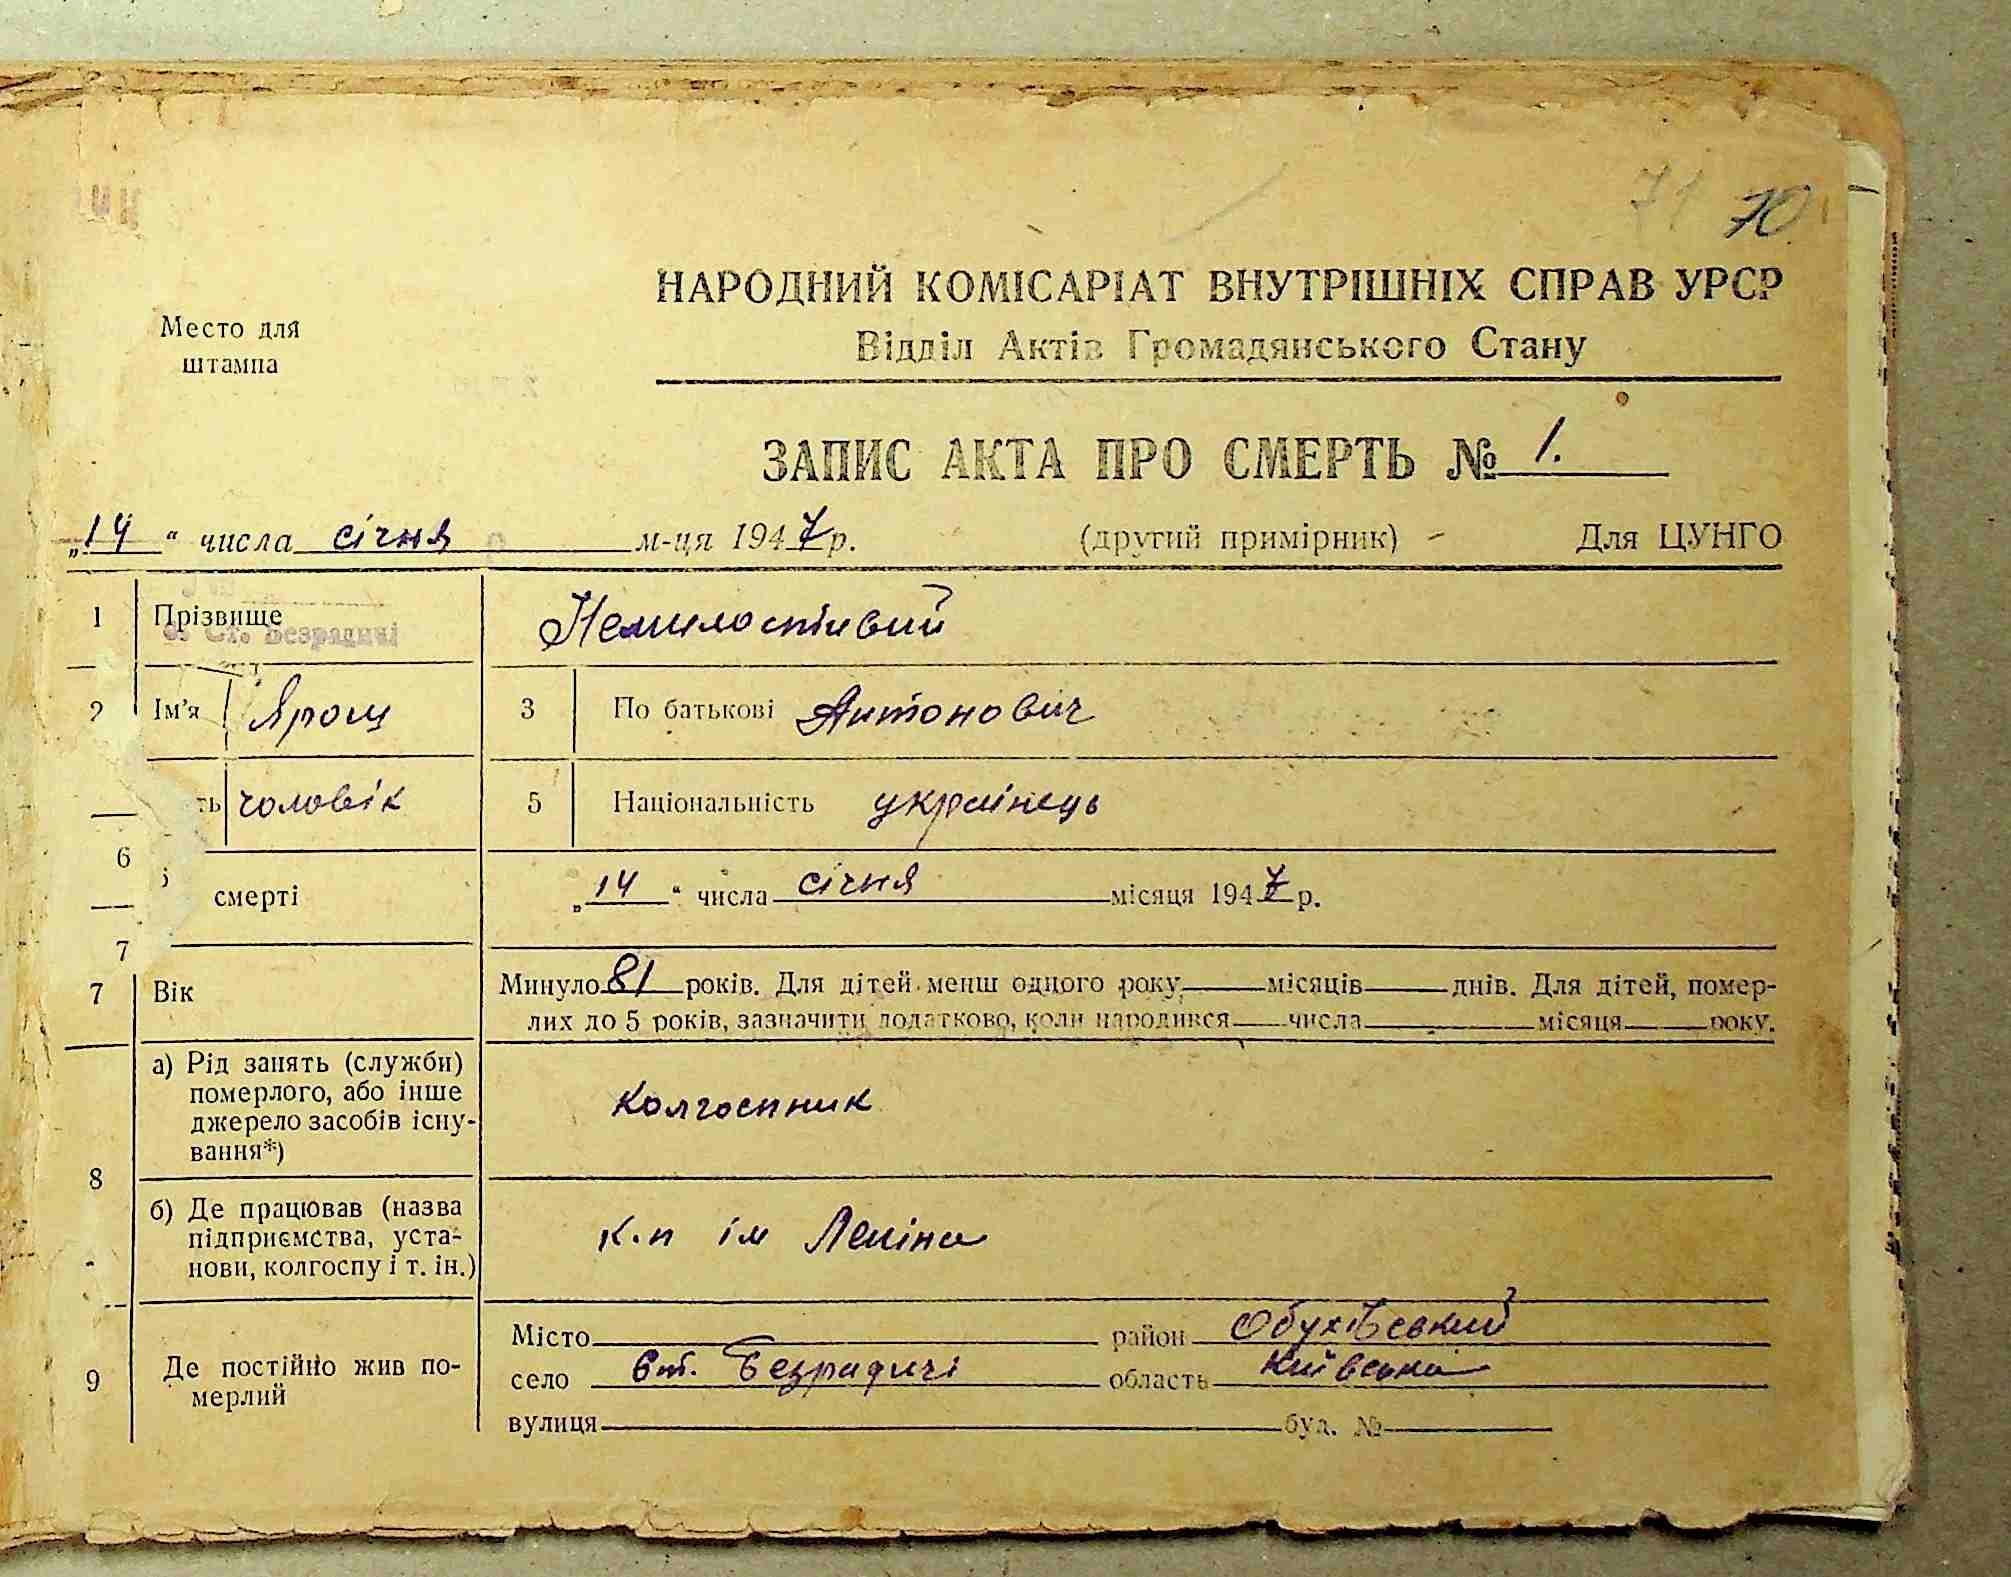 71 70
НАРОДНИЙ КОМІСАРІАТ ВНУТРІШНІХ СПРАВ УРСР
Место для
штампа
Відділ Актів Громадянського Стану
ЗАПИС АКТА ПРО СМЕРТЬ № 1.
„14“ числа січня м-ця 1947 р. (другий примірник) Для ЦУНГО
1 Прізвище Немилостівий
Ст. Безрадичі
2 Ім'я Ярош 3 По батькові Антонович
ть чоловік 5 Національність українець
6 смерті „14“ числа січня місяця 1947 р.
7
7 Вік Минуло 81 років. Для дітей менш одного року місяців днів. Для дітей, помер-
лих до 5 років, зазначити додатково, коли народився числа місяця року.
8 а) Рід занять (служби)
померлого, або інше
джерело засобів існу-
вання*)
колгоспник
б) Де працював (назва
підприємства, уста-
нови, колгоспу і т. ін.)
к.п ім Леніна
9 Де постійно жив по-
мерлий
Місто район Обухівський
село Ст. Безрадичі область Київська
вулиця буд. №